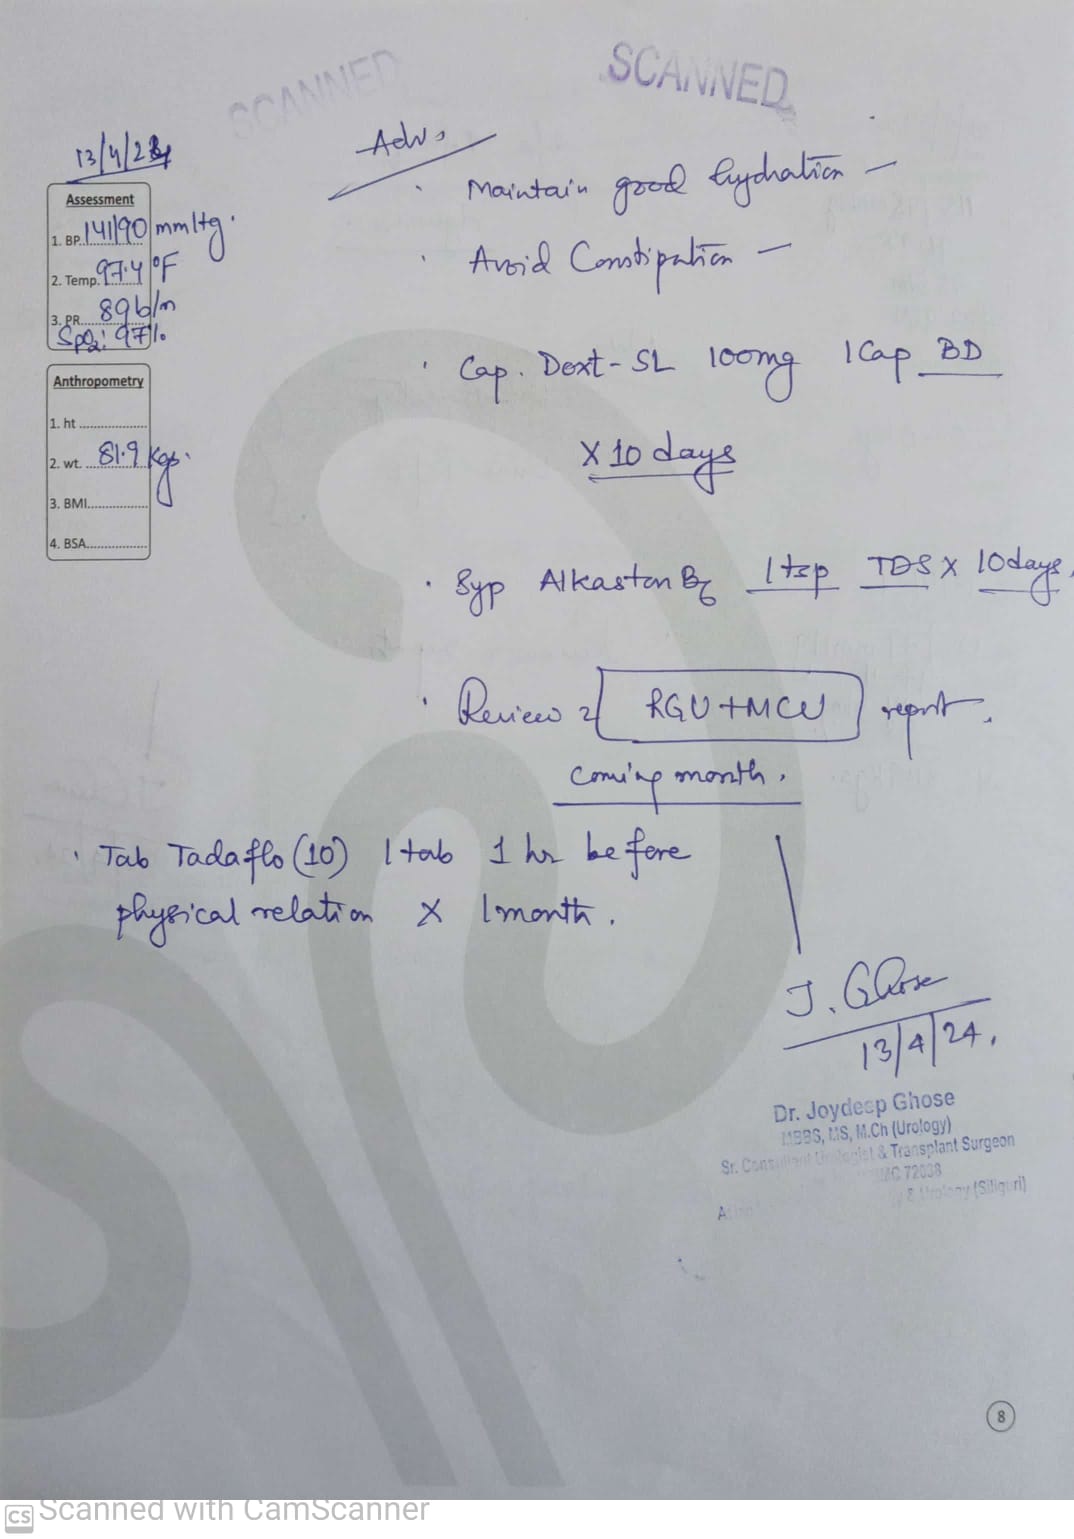 SCANNED
SCANNED
13/4/24
Adv,
Assessment
1. BP. 141/90 mmHg.
2. Temp. 97.4 °F
3. PR. 89 b/m
SpO2: 97%
Anthropometry
1. ht
2. wt. 81.9 Kgs.
3. BMI
4. BSA
· Maintain good hydration –
· Avoid Constipation –
· Cap. Doxt-SL 100mg 1 Cap BD
X 10 days
· Syp Alkaston B6 1 tsp TDS X 10 days.
· Review RGU+MCU report.
coming month.
· Tab Tadaflo (10) 1 tab 1 hr before
physical relation X 1 month.
J. Ghose
13/4/24.
Dr. Joydeep Ghose
MBBS, MS, M.Ch (Urology)
Sr. Consultant Urologist & Transplant Surgeon
& Urology (Siliguri)
8
CS Scanned with CamScanner